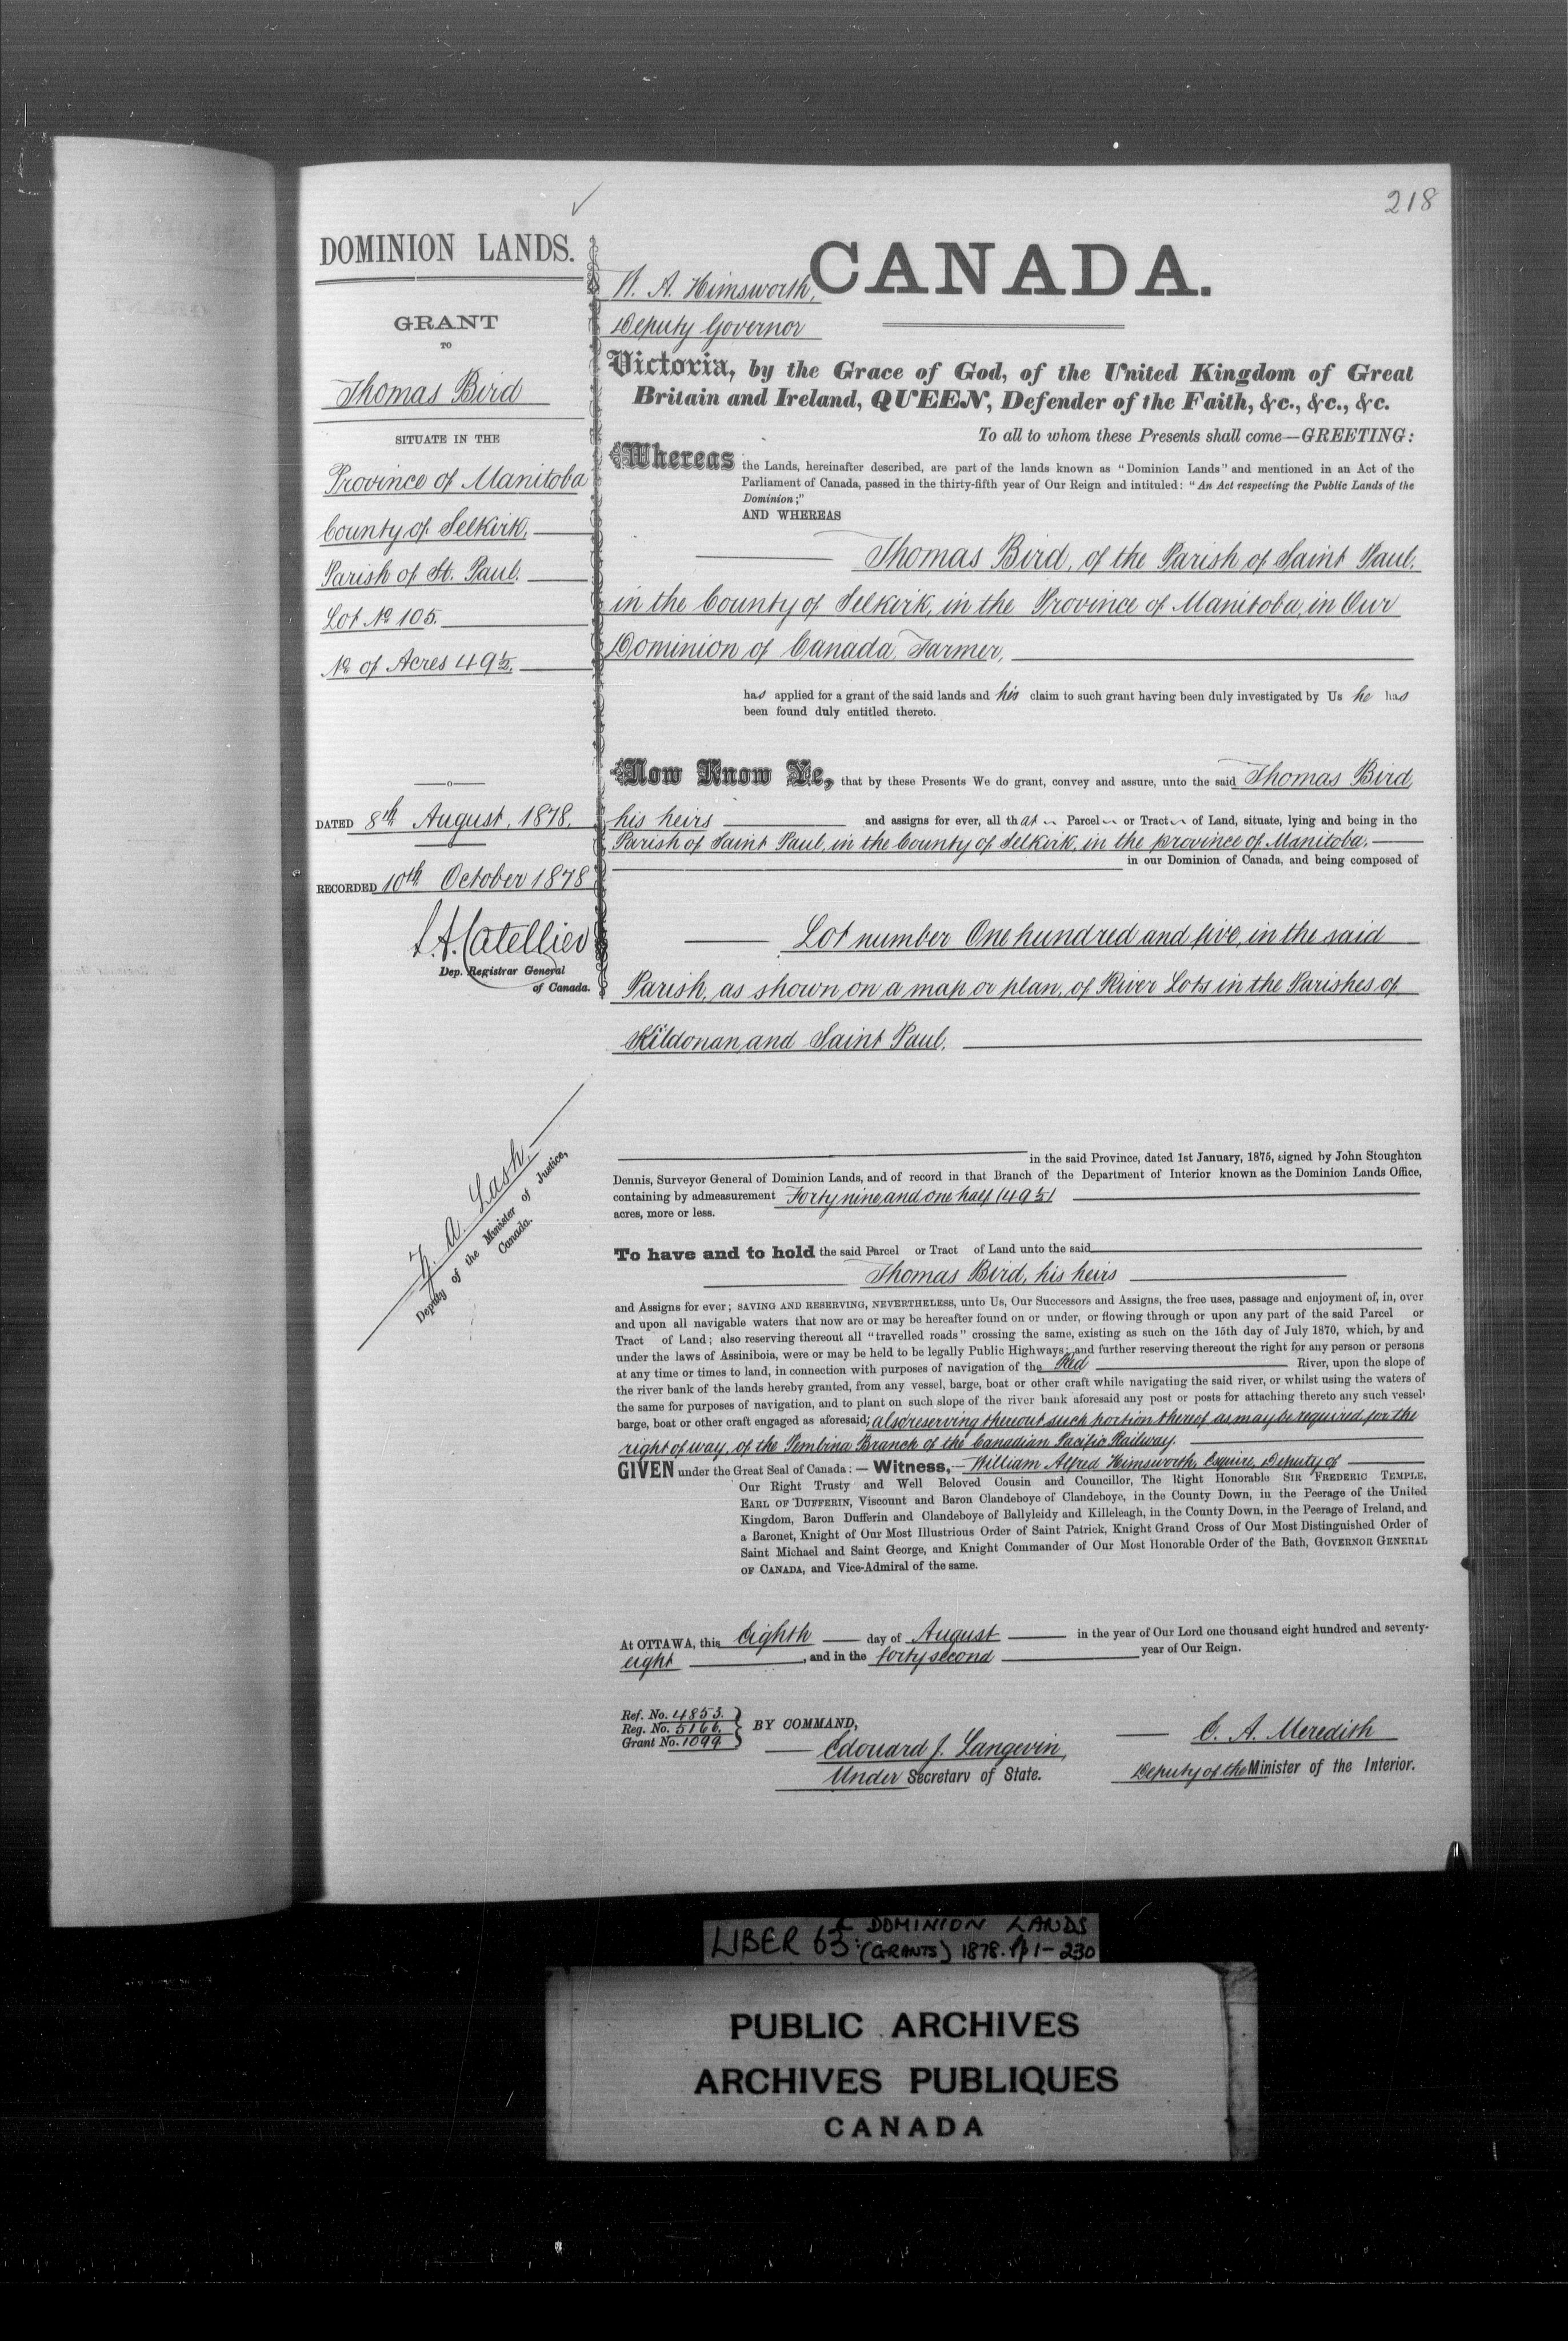 218
DOMINION LANDS.
GRANT
TO
Thomas Bird
SITUATE IN THE
Province of Manitoba
County of Selkirk,
Parish of St. Paul.
Lot No 105.
No of Acres 49½.
DATED 8th August, 1878.
RECORDED 10th October 1878
L. A. Catellier
Dep. Registrar General
of Canada.
Z. A. Lash,
Deputy of the Minister of Justice,
Canada.
CANADA.
W. A. Himsworth,
Deputy Governor
Victoria, by the Grace of God, of the United Kingdom of Great
Britain and Ireland, QUEEN, Defender of the Faith, &c., &c., &c.
To all to whom these Presents shall come—GREETING:
Whereas the Lands, hereinafter described, are part of the lands known as "Dominion Lands" and mentioned in an Act of the
Parliament of Canada, passed in the thirty-fifth year of Our Reign and intituled: "An Act respecting the Public Lands of the
Dominion;"
AND WHEREAS
Thomas Bird, of the Parish of Saint Paul.
in the County of Selkirk, in the Province of Manitoba, in Our
Dominion of Canada, Farmer,
has applied for a grant of the said lands and his claim to such grant having been duly investigated by Us he has
been found duly entitled thereto.
Now Know Ye, that by these Presents We do grant, convey and assure, unto the said Thomas Bird,
his heirs and assigns for ever, all that Parcel or Tract of Land, situate, lying and being in the
Parish of Saint Paul, in the County of Selkirk, in the province of Manitoba.
in our Dominion of Canada, and being composed of
Lot number One hundred and five, in the said
Parish, as shown on a map or plan, of River Lots in the Parishes of
Kildonan, and Saint Paul.
in the said Province, dated 1st January, 1875, signed by John Stoughton
Dennis, Surveyor General of Dominion Lands, and of record in that Branch of the Department of Interior known as the Dominion Lands Office,
containing by admeasurement Forty nine and one half (49½)
acres, more or less.
To have and to hold the said Parcel or Tract of Land unto the said
Thomas Bird, his heirs
and Assigns for ever; SAVING AND RESERVING, NEVERTHELESS, unto Us, Our Successors and Assigns, the free uses, passage and enjoyment of, in, over
and upon all navigable waters that now are or may be hereafter found on or under, or flowing through or upon any part of the said Parcel or
Tract of Land; also reserving thereout all "travelled roads" crossing the same, existing as such on the 15th day of July 1870, which, by and
under the laws of Assiniboia, were or may be held to be legally Public Highways; and further reserving thereout the right for any person or persons
at any time or times to land, in connection with purposes of navigation of the Red River, upon the slope of
the river bank of the lands hereby granted, from any vessel, barge, boat or other craft while navigating the said river, or whilst using the waters of
the same for purposes of navigation, and to plant on such slope of the river bank aforesaid any post or posts for attaching thereto any such vessel,
barge, boat or other craft engaged as aforesaid; also reserving thereout such portion thereof as may be required for the
right of way, of the Pembina Branch of the Canadian Pacific Railway.
GIVEN under the Great Seal of Canada: — Witness, — William Alfred Himsworth, Esquire, Deputy of
Our Right Trusty and Well Beloved Cousin and Councillor, The Right Honorable SIR FREDERIC TEMPLE,
EARL OF DUFFERIN, Viscount and Baron Clandeboye of Clandeboye, in the County Down, in the Peerage of the United
Kingdom, Baron Dufferin and Clandeboye of Ballyleidy and Killeleagh, in the County Down, in the Peerage of Ireland, and
a Baronet, Knight of Our Most Illustrious Order of Saint Patrick, Knight Grand Cross of Our Most Distinguished Order of
Saint Michael and Saint George, and Knight Commander of Our Most Honorable Order of the Bath, GOVERNOR GENERAL
OF CANADA, and Vice-Admiral of the same.
At OTTAWA, this Eighth day of August in the year of Our Lord one thousand eight hundred and seventy-
eight, and in the forty second year of Our Reign.
Ref. No. 4853.
Reg. No. 5166.
Grant No. 1099.
BY COMMAND,
Edouard J. Langevin,
Under Secretary of State.
E. A. Meredith
Deputy of the Minister of the Interior.
LIBER 63: DOMINION LANDS
(GRANTS) 1878. pp 1-230
PUBLIC ARCHIVES
ARCHIVES PUBLIQUES
CANADA